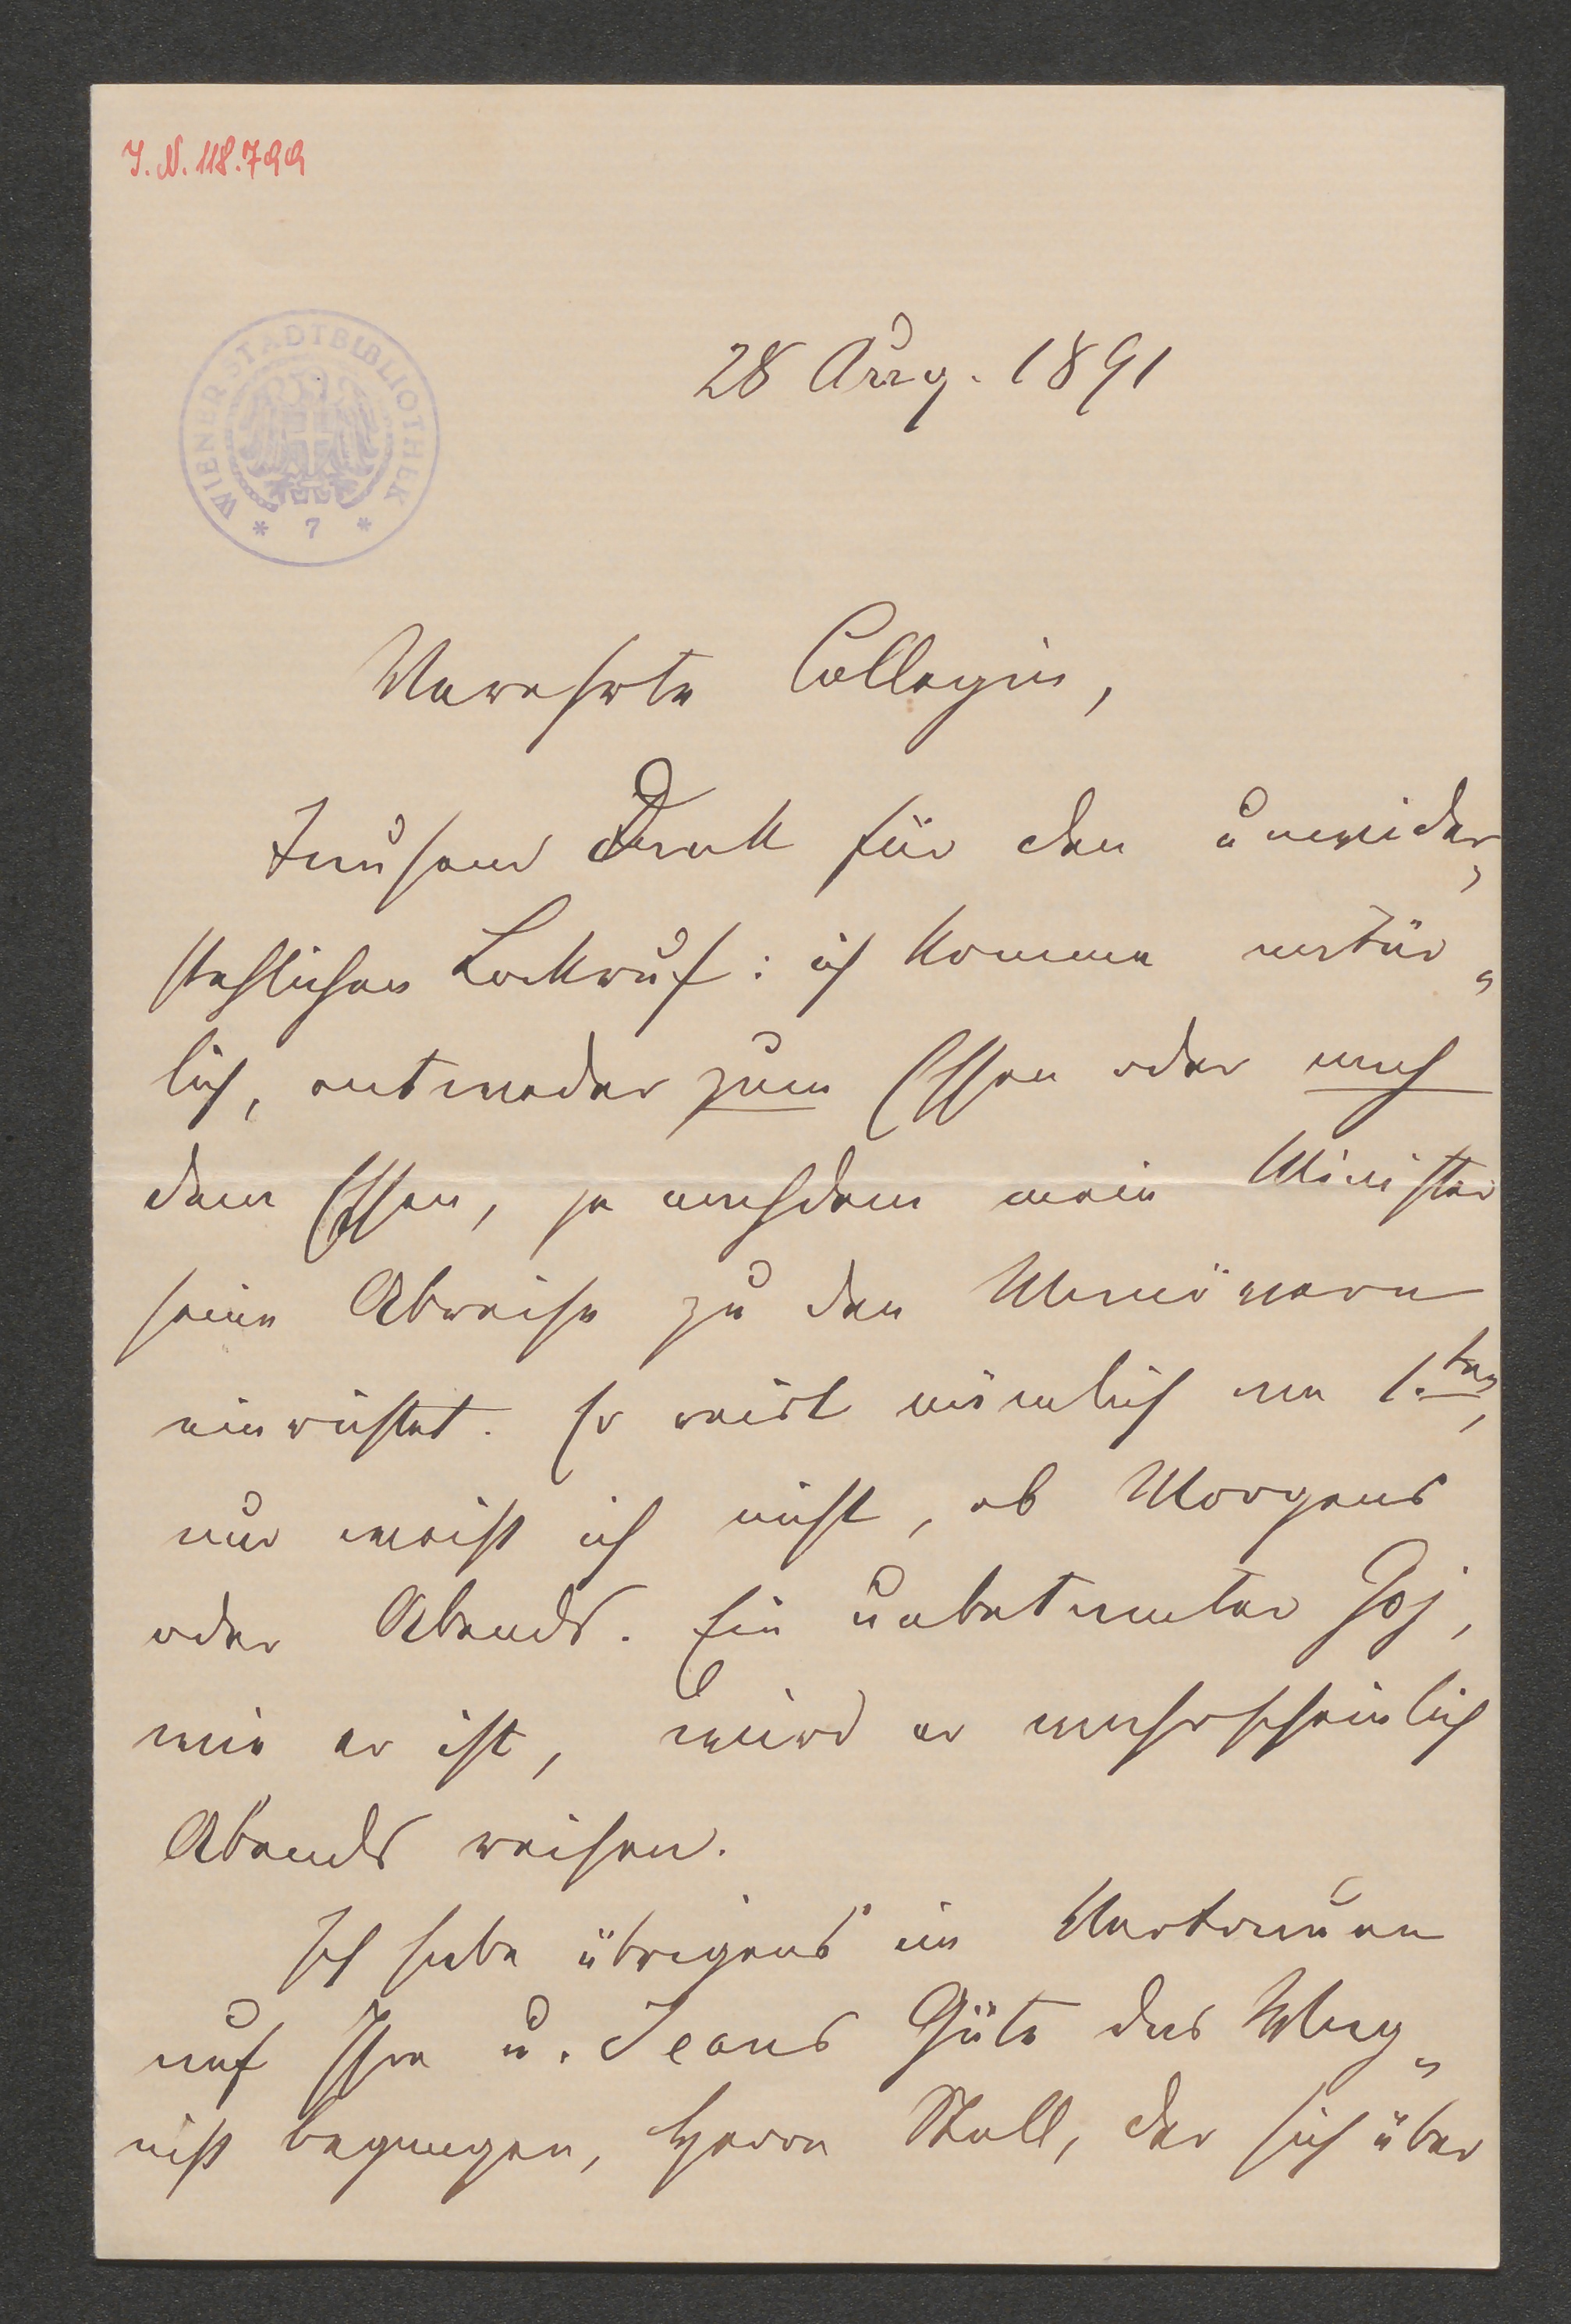 I. N. 118.799
WIENER STADTBIBLIOTHEK
* 7 *
28 Aug. 1891
Verehrte Collegin,
Tausend Dank für den unwider„
stehlichen Lockruf: ich komme natür„
lich, entweder zum Essen oder nach
dem Essen, je nachdem mein Minister
seine Abreise zu den Manövern
einrichtet. Er reist nämlich am 1.ten,
nur weiß ich nicht, ob Morgens
oder Abends. Ein Goj,
wie er ist, wird er wahrscheinlich
Abends reisen.
Ich habe übrigens im Vertrauen
auf Ihre u. Jeans Güte das Wag„
niß begangen, Herrn Stall, der sich über